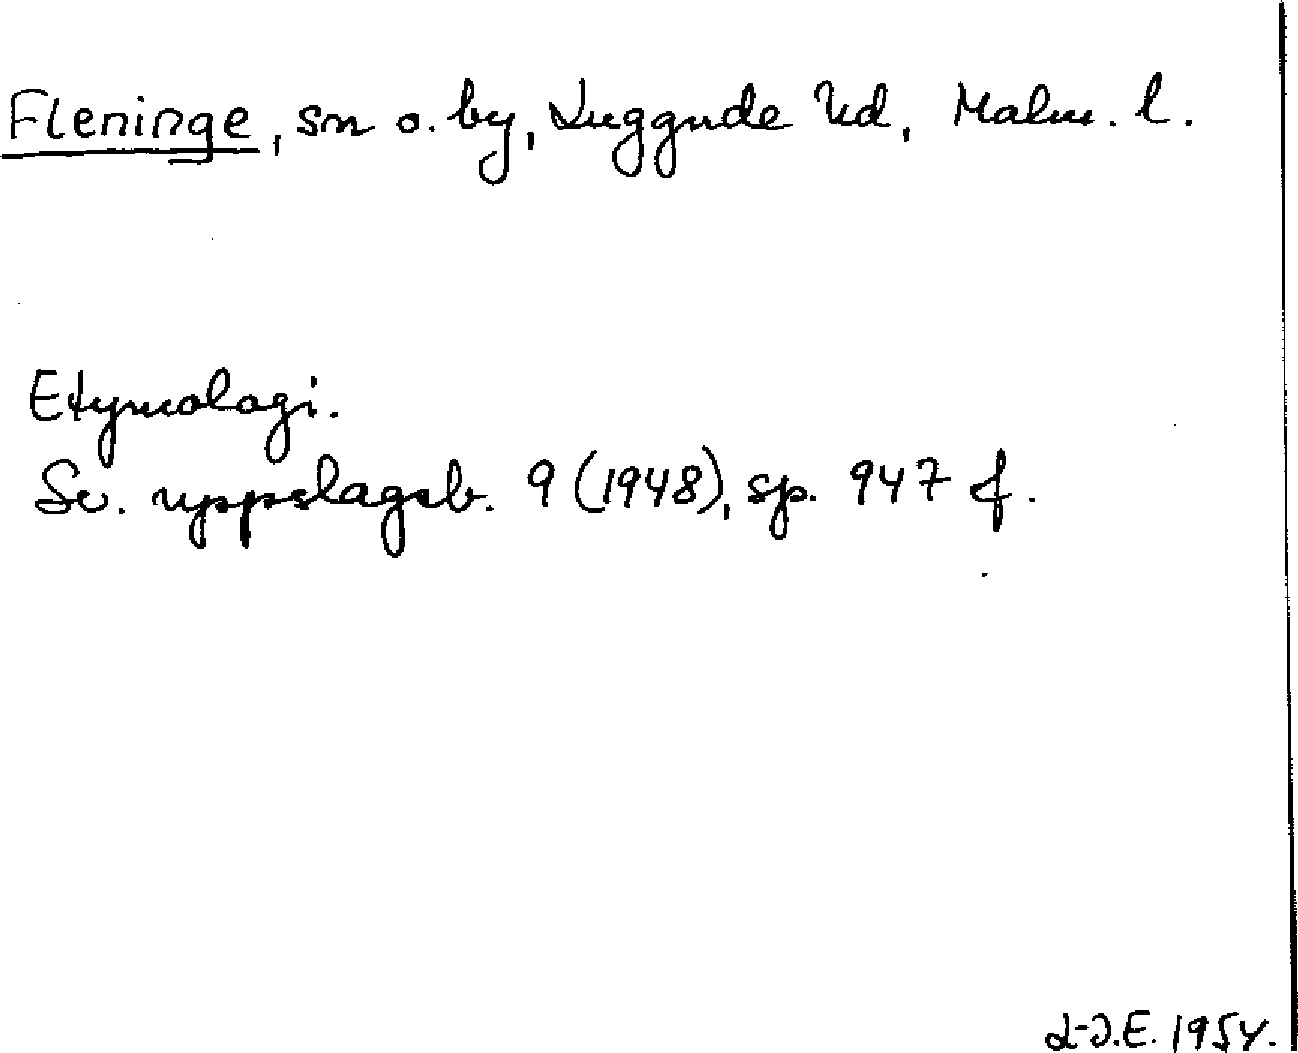 Fleninge, sn o. by, Luggude hd, Malm. l.
Etymologi.
Sv. uppslagsb. 9 (1948), sp. 947 f.
L-J.E. 1954.